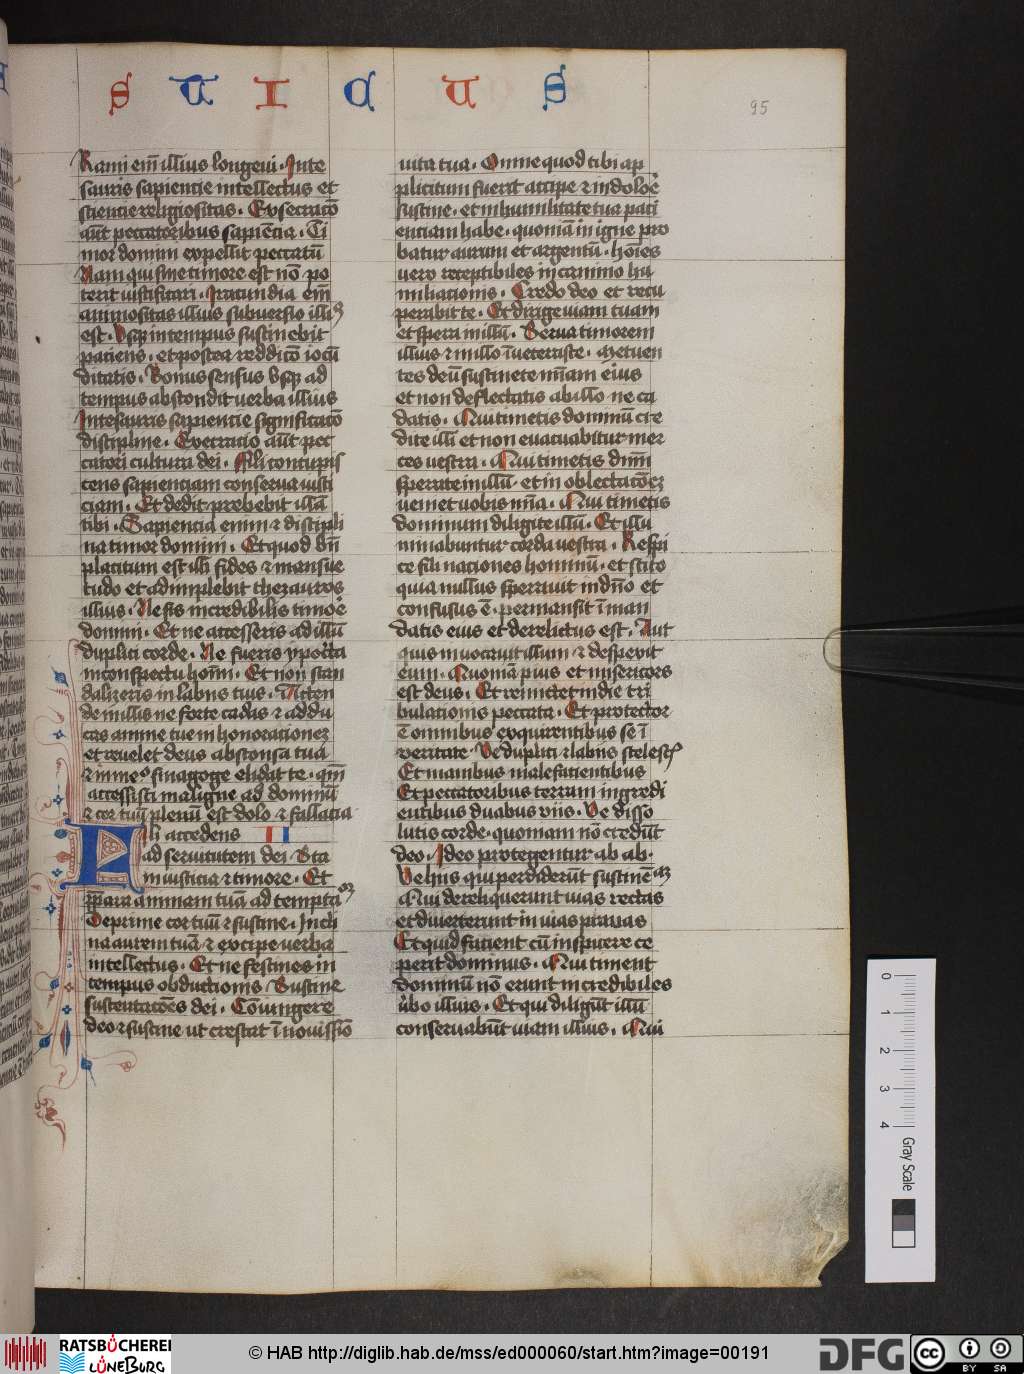 S T I C U S
95
Rami em̄ illius longeui . Inte
sauris sapientie intellectus et
scientie religiositas . Exsecracō
aūt peccatoribus sapiēcia . Ti
mor domini expellit peccatū
Nam qui sine timore est nō po
terit iustificari . Iracundia em̄
animositas illius subuersio illiꝰ
est . Vsqꝫ in tempus sustinebit
paciens . et postea reddicō iocū
ditatis . Bonus sensus vsqꝫ ad
tempus abscondit verba illius
In tesauris sapientie significacō
discipline . Execracio aūt pec
catori cultura dei . Fili concupis
cens sapienciam conserua iusti
ciam . Et dedit prebebit illā
tibi . Sapiencia enim ⁊ discipli
na timor domini . Et quod bn̄
placitum est illi fides ⁊ mansue
tudo et adimplebit thezauros
illius . Ne sis incredibilis timoē
domini . Et ne accesseris ad illū
duplici corde . Ne fueris ypocrita
in conspectu hom̄ . Et non scan
dalizeris in labiis tuis . Atten
de in illis ne forte cadas ⁊ addu
cas anime tue in honorationeꝫ
et reuelet deus absconsa tua
⁊ in meº sinagoge elidat te . qm̄
accessisti maligne ad dominū
⁊ cor tuū plenū est dolo ⁊ fallatia
Fili accedens II
ad seruitutem dei . Sta
in iusticia ⁊ timore . Et
p̄para animam tuā ad temptaōꝫ
Deprime cor tuū ⁊ sustine . Incli
na aurem tuā ⁊ excipe uerba
intellectus . Et ne festines in
tempus obductionis / Sustine
sustentacōes dei . Cōiungere
deo ⁊ sustine ut crescat ī nouissīo
uita tua . Omne quod tibi ap
plicitum fuerit accipe ⁊ in doloē
sustine . et in humilitate tua paci
enciam habe . quoniā in igne pro
batur aurum et argentū . hoīes
uero receptibiles in camino hu
miliacionis . Credo deo et recu
perabit te . Et dirige viam tuam
et spera in illū . Serua timorem
illius ⁊ in illo īueterasce . Metuen
tes deū sustinete mīam eius
et non deflectatis ab illo ne ca
datis . Qui timetis dominū cre
dite illi et non euacuabitur mer
ces uestra . Qui timetis dnm̄
sperate in illū . et in oblectacōeꝫ
ueniet uobis mīa . Qui timetis
dominum diligite illū . Et illu
minabuntur corda uestra . Respi
ce fili naciones hominū . et scito
quia nullus sperauit in dn̄o et
confusus ē . permansit ī man
datis eius et derelictus est . Aut
quis inuocauit illum ⁊ despexit
eum . Quoniam pius et misericors
est deus . Et remittet in die tri
bulationis peccata . Et protector
ē omnibus exquirentibus se ī
veritate . Ve duplici ⁊ labiis scelestꝭ
Et manibus malefacientibus
Et peccatoribus terram ingredi
entibus duabus viis . Ve disso
lutis corde . quoniam nō credūt
deo . Ideo protegentur ab ab .
Ve hiis qui perdiderūt sustinēaꝫ
Qui dereliquerunt uias rectas
et diuerterunt in uias prauas
Et quid facient cū inspicere ce
perit dominus . Qui timent
dominū nō erunt incredibiles
u̇bo illius . Et qui diligūt illū
conseruabūt uiam illius . Qui
0 1 2 3 4
Gray Scale
RATSBÜCHEREI
LÜNEBURG
© HAB http://diglib.hab.de/mss/ed000060/start.htm?image=00191
DFG
cc BY SA